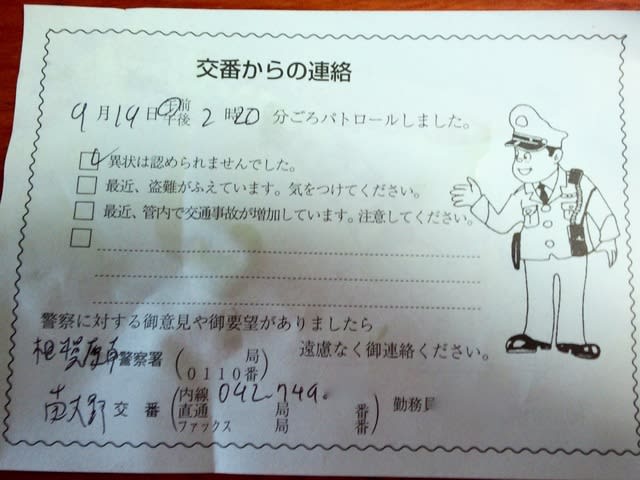 交番からの連絡
9月19日 午前 午後 2時20分ごろパトロールしました。
異状は認められませんでした。
最近、盗難がふえています。気をつけてください。
最近、管内で交通事故が増加しています。注意してください。
警察に対する御意見や御要望がありましたら
遠慮なく御連絡ください。
相模原南警察署 ( 局 0110番 )
南大野交番 ( 内線 042-749 直通 局 番 ファックス 局 番 ) 勤務員